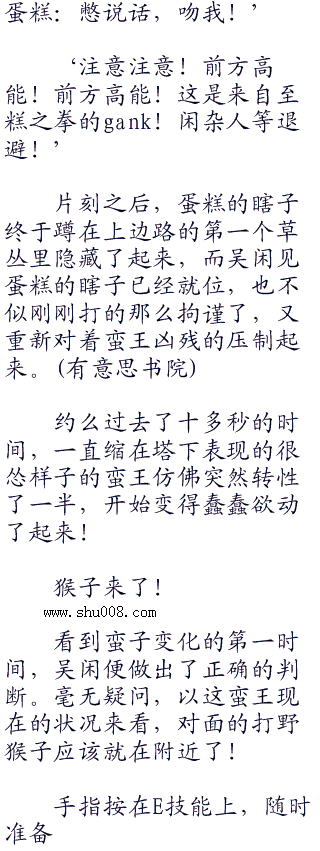 蛋糕：憋说话，吻我！’
‘注意注意！前方高
能！前方高能！这是来自至
糕之拳的gank！闲杂人等退
避！’
片刻之后，蛋糕的瞎子
终于蹲在上边路的第一个草
丛里隐藏了起来，而吴闲见
蛋糕的瞎子已经就位，也不
似刚刚打的那么拘谨了，又
重新对着蛮王凶残的压制起
来。(有意思书院)
约么过去了十多秒的时
间，一直缩在塔下表现的很
怂样子的蛮王仿佛突然转性
了一半，开始变得蠢蠢欲动
了起来！
猴子来了！
www.shu008.com
看到蛮子变化的第一时
间，吴闲便做出了正确的判
断。毫无疑问，以这蛮王现
在的状况来看，对面的打野
猴子应该就在附近了！
手指按在E技能上，随时
准备